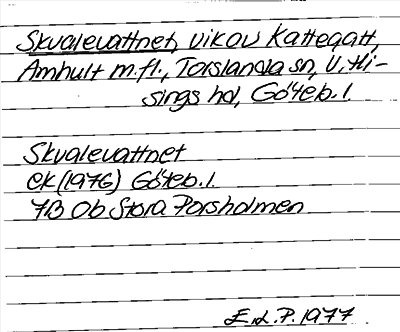 Skvalevattnet, vik av Kattegatt,
Amhult m.fl., Torslanda sn, V. Hi-
sings hd, Göteb. l.
Skvalevattnet
ek (1976) Göteb. l.
7B 0b Stora Porsholmen
E.d.P. 1977